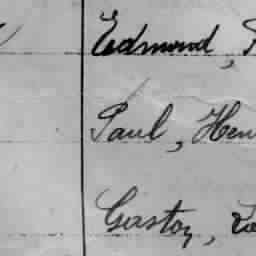 Edmond,
Paul, Hen
Gaston,